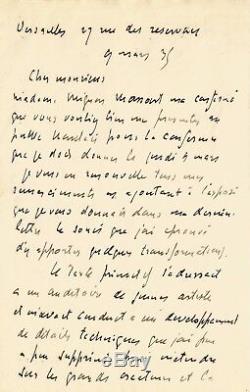 Versailles 27 rue des reservoirs
9 mars 35
Cher monsieur
madame Mignon Massart m'a confirmé
que vous vouliez bien me présenter au
public pour la conférence
que je dois donner le jeudi mars
Je vous en renouvelle tous mes
remerciements en ajoutant à l'exposé
que je vous donnais dans ma dernière
lettre le souci que j'ai éprouvé
d'y apporter quelques transformations.
Le texte primitif s'adressait
à un auditoire de jeunes artistes
et m'avait conduit à un développement
de détails techniques que j'ai pu
supprimer pour m'étendre
sur les grands créateurs et la